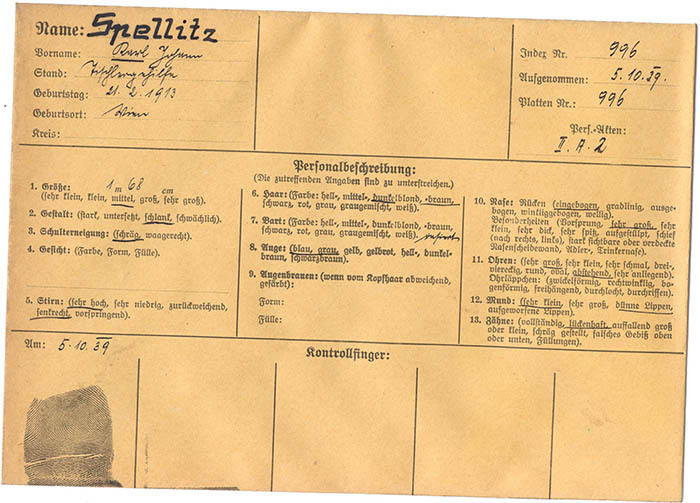 Name: Spellitz
Vorname: Karl Johann
Stand: Tischlergehilfe
Geburtstag: 21. 2. 1913
Geburtsort: Wien
Kreis:
Index Nr. 996
Aufgenommen: 5. 10. 39.
Platten Nr.: 996
Pers.-Akten:
II. A. 2
Personalbeschreibung:
(Die zutreffenden Angaben sind zu unterstreichen.)
1. Größe: 1 m 68 cm
(sehr klein, klein, mittel, groß, sehr groß).
2. Gestalt: (stark, untersetzt, schlank, schwächlich).
3. Schulterneigung: (schräg, waagerecht).
4. Gesicht: (Farbe, Form, Fülle).
5. Stirn: (sehr hoch, sehr niedrig, zurückweichend,
senkrecht, vorspringend).
6. Haar: (Farbe: hell-, mittel-, dunkelblond, -braun,
schwarz, rot, grau, graugemischt, weiß).
7. Bart: (Farbe: hell-, mittel-, dunkelblond, -braun,
schwarz, rot, grau, graugemischt, weiß).
8. Auge: (blau, grau, gelb, gelbrot, hell-, dunkel-
braun, schwarzbraun).
9. Augenbrauen: (wenn vom Kopfhaar abweichend,
gefärbt):
Form:
Fülle:
10. Nase: Rücken (eingebogen, gradlinig, ausge-
bogen, winkliggebogen, wellig).
Besonderheiten (Vorsprung, sehr groß, sehr
klein, sehr dick, sehr spitz, aufgestülpt, schief
(nach rechts, links), stark sichtbare oder verdeckte
Nasenscheidewand, Adler-, Trinkernase).
11. Ohren: (sehr groß, sehr klein, sehr schmal, drei-,
viereckig, rund, oval, abstehend, sehr anliegend).
Ohrläppchen: (zwickelförmig, rechtwinklig, bo-
genförmig, freihängend, durchlocht, durchrissen).
12. Mund: (sehr klein, sehr groß, dünne Lippen,
aufgeworfene Lippen).
13. Zähne: (vollständig, lückenhaft, auffallend groß
oder klein, schräg gestellt, falsches Gebiß oben
oder unten, Füllungen).
Am: 5. 10. 39
Kontrollfinger: